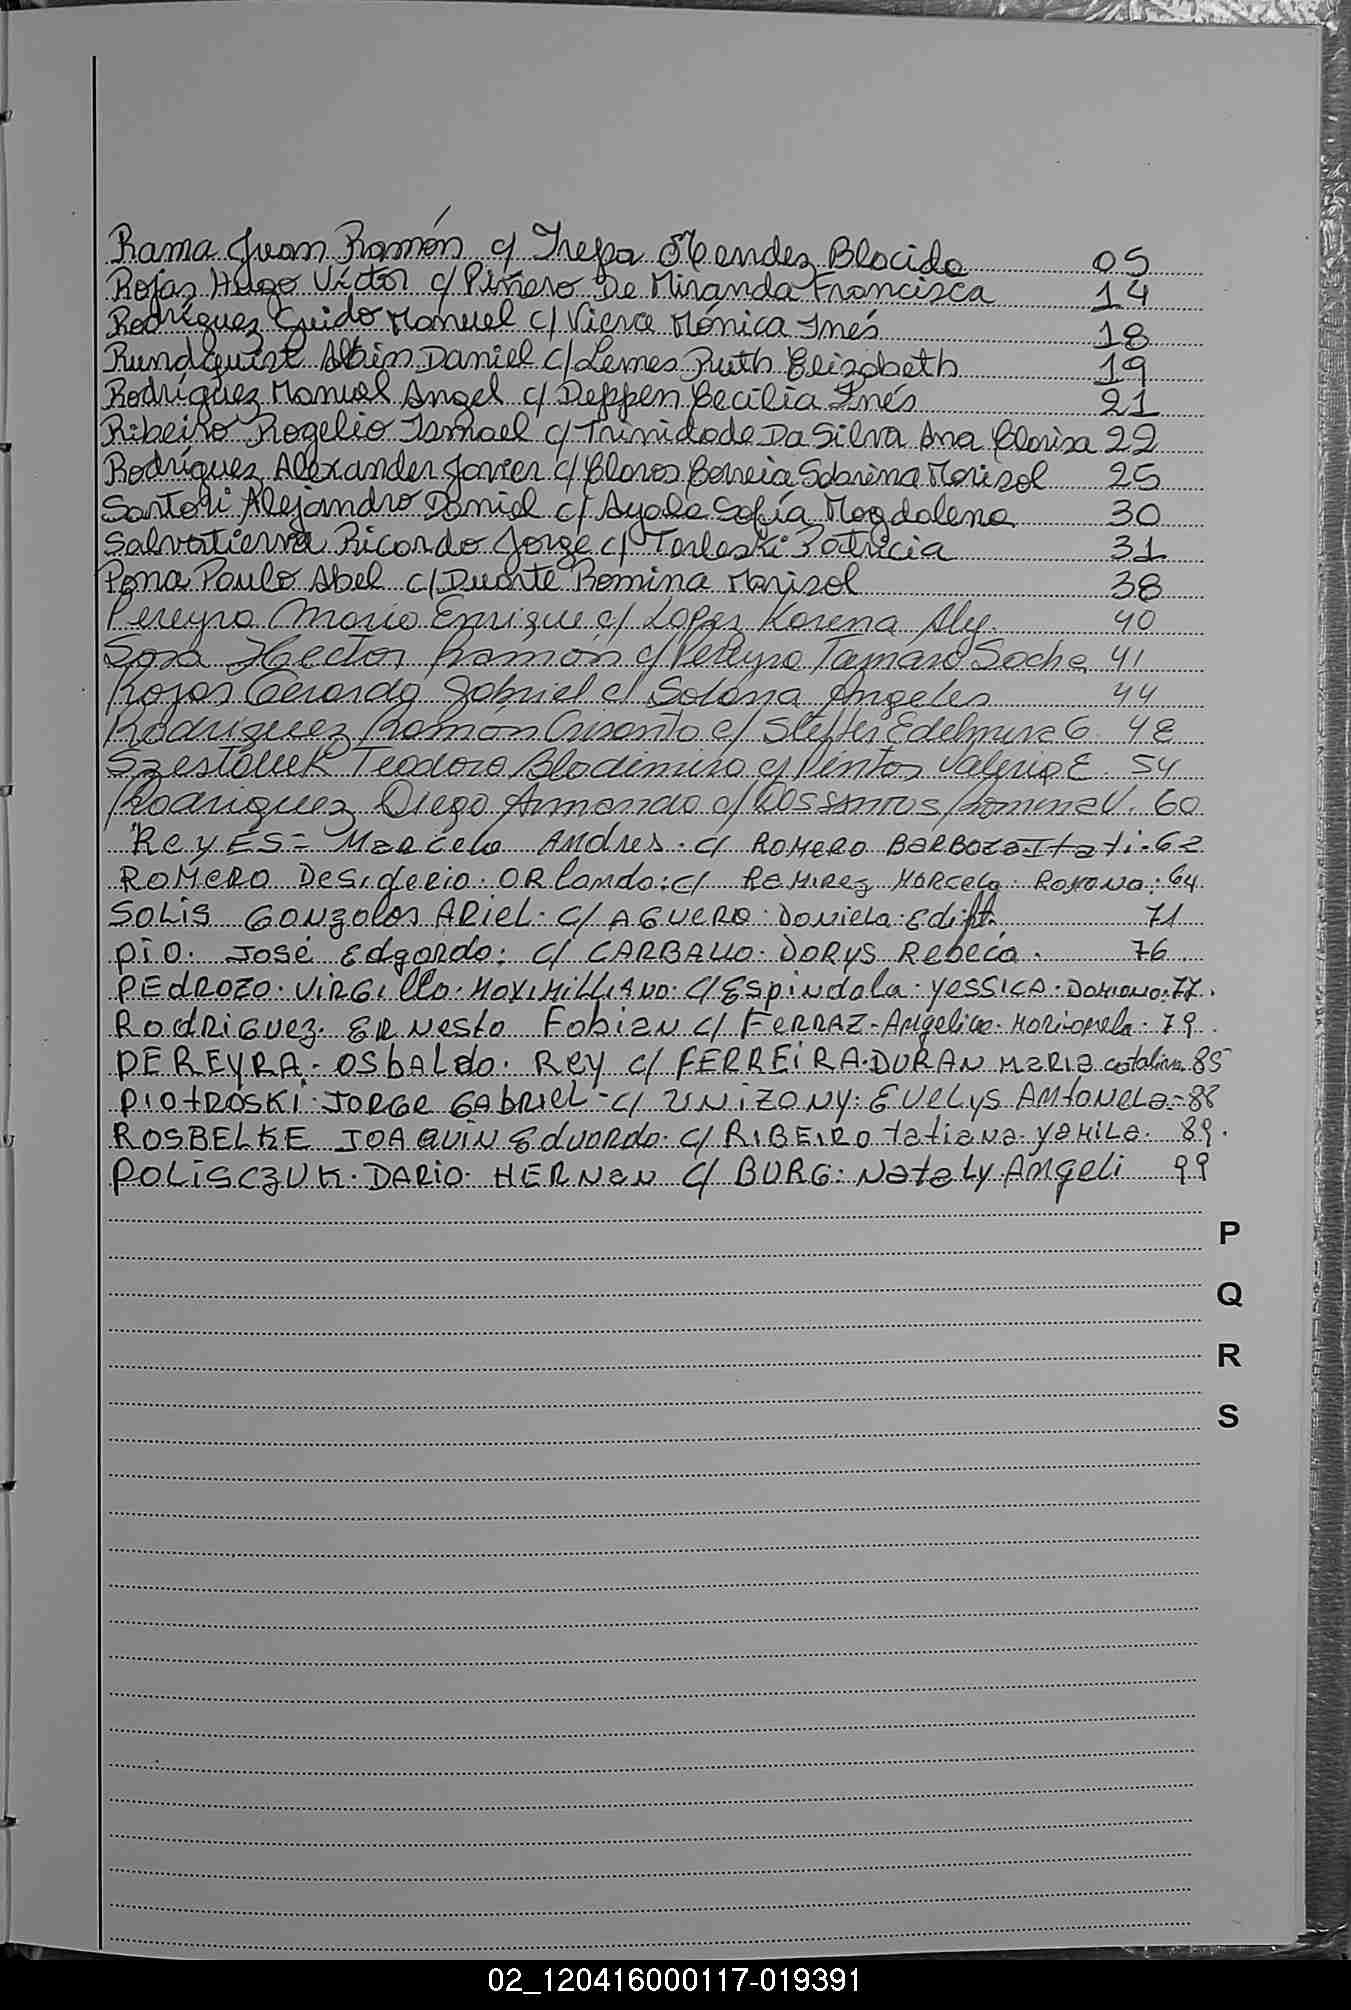 Rama Juan Ramón c/ Trepa Mendez Blacida 05
Rojas Hugo Víctor c/ Piñero De Miranda Francisca 14
Rodríguez Guido Manuel c/ Viera Mónica Inés 18
Rundquist Albin Daniel c/ Lemes Ruth Elizabeth 19
Rodríguez Manuel Angel c/ Deppen Cecilia Inés 21
Ribeiro Rogelio Ismael c/ Trinidade Da Silva Ana Clarisa 22
Rodríguez Alexander Javier c/ Claros Correia Sabrina Marisol 25
Sartori Alejandro Daniel c/ Ayala Sofía Magdalena 30
Salvatierra Ricardo Jorge c/ Tarleski Patricia 31
Pona Paulo Abel c/ Duarte Romina Marisol 38
Pereyra Mario Enrique c/ Lopez Korena Aly. 40
Sosa Hector Ramón c/ Pereyra Tamara Soche 41
Rojas Gerardo Gabriel c/ Solana Angeles 44
Rodriguez Ramón Crisanto c/ Edelmira G. 48
Teodoro Blodimiro c/ Pintos Valeria E. 54
Rodriguez Diego Armando c/ Dos santos Romina V. 60
Reyes = Marcelo Andres. c/ ROMERO BARBOZA Itati. 62
ROMERO Desiderio. ORlando: c/ RAMIREZ MARCELA. ROMONA: 64
SOLIS Gonzolos ARiel. c/ AGUERO. Daniela. Edith. 71
PiO. José Edgardo: c/ CARBALLO. DORYS Rebeca. 76
PEdROZO. ViRGillo. MAXIMILLIANO. c/ Espindola. YESSICA. DAMIANA: 77.
RodRiGuez. ERNesto Fabian c/ FeRRAZ - Angelica. Mariomela. 79.
PEREYRA. OSbALdo. Rey c/ FERREiRA. DURAN Maria catalina. 85
PIOtROSKi. JORGe GAbRiel - c/ UNiZONY. EVelYS ANtONeLa - 88
ROSBELKE JOAQUiN Eduardo. c/ RIBEIRO tatiana YAMILA. 89.
POLiSCZUK. DARIO. HERNAN c/ BURG. NataLy Angeli 99
P
Q
R
S
02_120416000117-019391